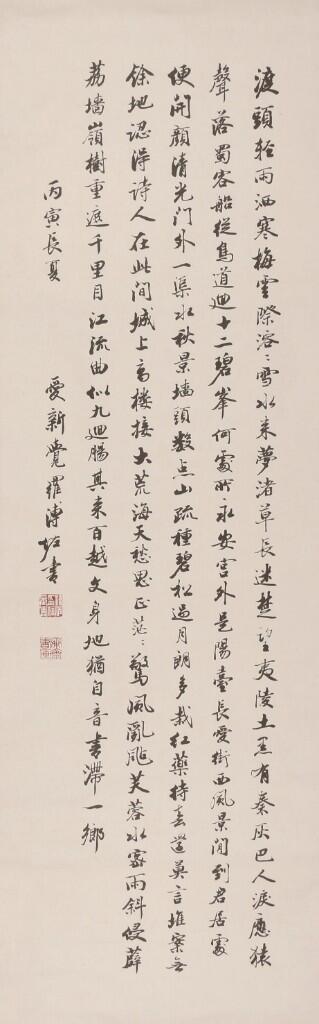 渡頭輕雨洒寒梅雲際溶〻雪水来夢渚草長迷楚望夷陵土黑有秦灰巴人淚應猿
聲落蜀客船從鳥道迴十二碧峯何處所永安宮外是陽臺長愛街西風景閒到君居處
便開顏清光門外一渠水秋景墻頭數点山疏種碧松過月朗多栽紅藥待春還莫言堆案無
餘地認得詩人在此間城上高樓接大荒海天愁思正茫〻驚風亂颭芙蓉水密雨斜侵薜
荔墙嶺樹重遮千里目江流曲似九迴腸共来百越文身地猶自音書滯一鄉
丙寅長夏
愛新覺羅溥佐書